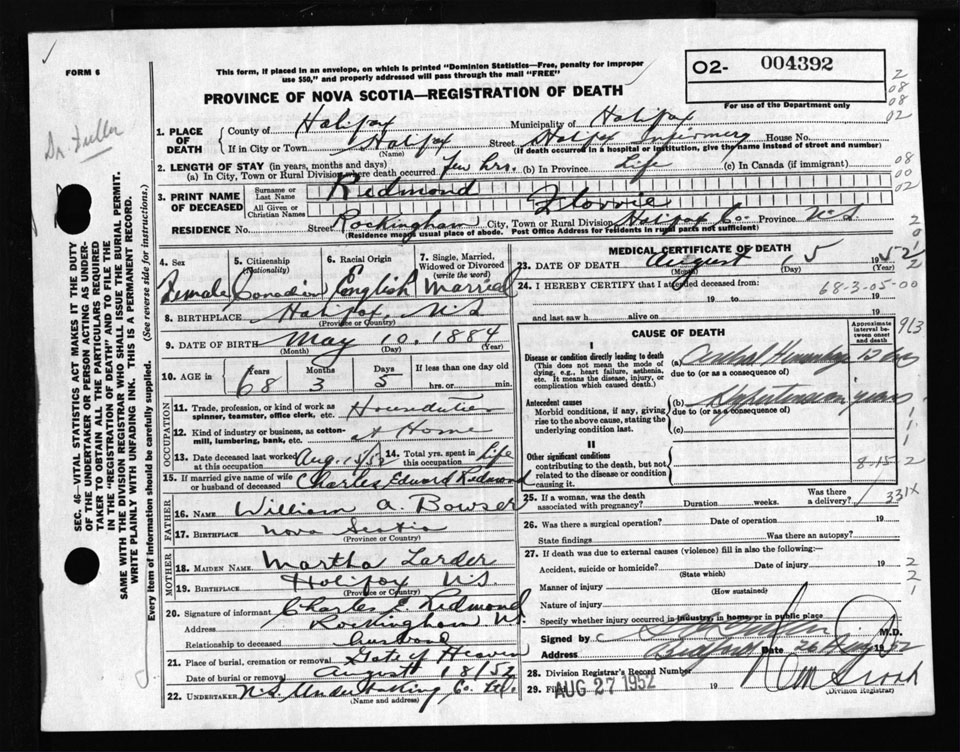 FORM 6
This form, if placed in an envelope, on which is printed "Dominion Statistics—Free, penalty for improper
use $50," and properly addressed will pass through the mail "FREE"
O2- 004392
For use of the Department only
PROVINCE OF NOVA SCOTIA—REGISTRATION OF DEATH
Dr. Fuller
SEC. 46—VITAL STATISTICS ACT MAKES IT THE DUTY
OF THE UNDERTAKER OR PERSON ACTING AS UNDER-
TAKER TO OBTAIN ALL THE PARTICULARS REQUIRED
IN THE "REGISTRATION OF DEATH" AND TO FILE THE
SAME WITH THE DIVISION REGISTRAR WHO SHALL ISSUE THE BURIAL PERMIT.
WRITE PLAINLY WITH UNFADING INK. THIS IS A PERMANENT RECORD.
Every item of information should be carefully supplied. (See reverse side for instructions.)
1. PLACE OF DEATH
County of Halifax Municipality of Halifax
If in City or Town Halifax Street Halifax Infirmary House No.
(Name) (If death occurred in a hospital or institution, give the name instead of street and number)
2. LENGTH OF STAY (in years, months and days)
(a) In City, Town or Rural Division where death occurred few hrs. (b) In Province Life (c) In Canada (if immigrant)
3. PRINT NAME OF DECEASED
Surname or Last Name Redmond
All Given or Christian Names Florrie
RESIDENCE No. Street Rockingham City, Town or Rural Division Halifax Co. Province N.S.
(Residence means usual place of abode. Post Office Address for residents in rural parts not sufficient)
4. Sex Female
5. Citizenship (Nationality) Canadian
6. Racial Origin English
7. Single, Married, Widowed or Divorced (write the word) Married
8. BIRTHPLACE Halifax, N.S.
(Province or Country)
9. DATE OF BIRTH May 10, 1884
(Month) (Day) (Year)
10. AGE in Years 68 Months 3 Days 5 If less than one day old
hrs. or min.
OCCUPATION
11. Trade, profession, or kind of work as spinner, teamster, office clerk, etc. Houseduties
12. Kind of industry or business, as cotton-mill, lumbering, bank, etc. at Home
13. Date deceased last worked at this occupation Aug. 15/52 14. Total yrs. spent in this occupation Life
15. If married give name of wife or husband of deceased Charles Edward Redmond
FATHER
16. NAME William A. Bowser
17. BIRTHPLACE Nova Scotia
(Province or Country)
MOTHER
18. MAIDEN NAME Martha Larder
19. BIRTHPLACE Halifax N.S.
(Province or Country)
20. Signature of informant Charles E. Redmond
Address Rockingham N.S.
Relationship to deceased husband
21. Place of burial, cremation or removal Gate of Heaven
Date of burial or removal August 18/52
22. UNDERTAKER N.S. Undertaking Co. Ltd.
(Name and address)
MEDICAL CERTIFICATE OF DEATH
23. DATE OF DEATH August 15 1952
(Month) (Day) (Year)
24. I HEREBY CERTIFY that I attended deceased from:
68-3-05-00
19 to 19
and last saw h alive on 19
CAUSE OF DEATH
Approximate interval between onset and death
I
Disease or condition directly leading to death
(This does not mean the mode of dying, e.g., heart failure, asthenia, etc. It means the disease, injury, or complication which caused death.)
(a) Cerebral Hemorrhage
due to (or as a consequence of)
Antecedent causes
Morbid conditions, if any, giving rise to the above cause, stating the underlying condition last.
(b) Hypertension years
due to (or as a consequence of)
(c)
II
Other significant conditions
contributing to the death, but not related to the disease or condition causing it.
8-15-2
25. If a woman, was the death associated with pregnancy? Duration weeks. Was there a delivery?
331X
26. Was there a surgical operation? Date of operation 19
State findings Was there an autopsy?
27. If death was due to external causes (violence) fill in also the following:—
Accident, suicide or homicide? Date of injury 19
(State which)
Manner of injury
(How sustained)
Nature of injury
Specify whether injury occurred in industry, in home, or in public place
Signed by M.D.
Address Bedford Date 26 Aug 1952
28. Division Registrar's Record Number
29. Filed AUG 27 1952 19
(Division Registrar)